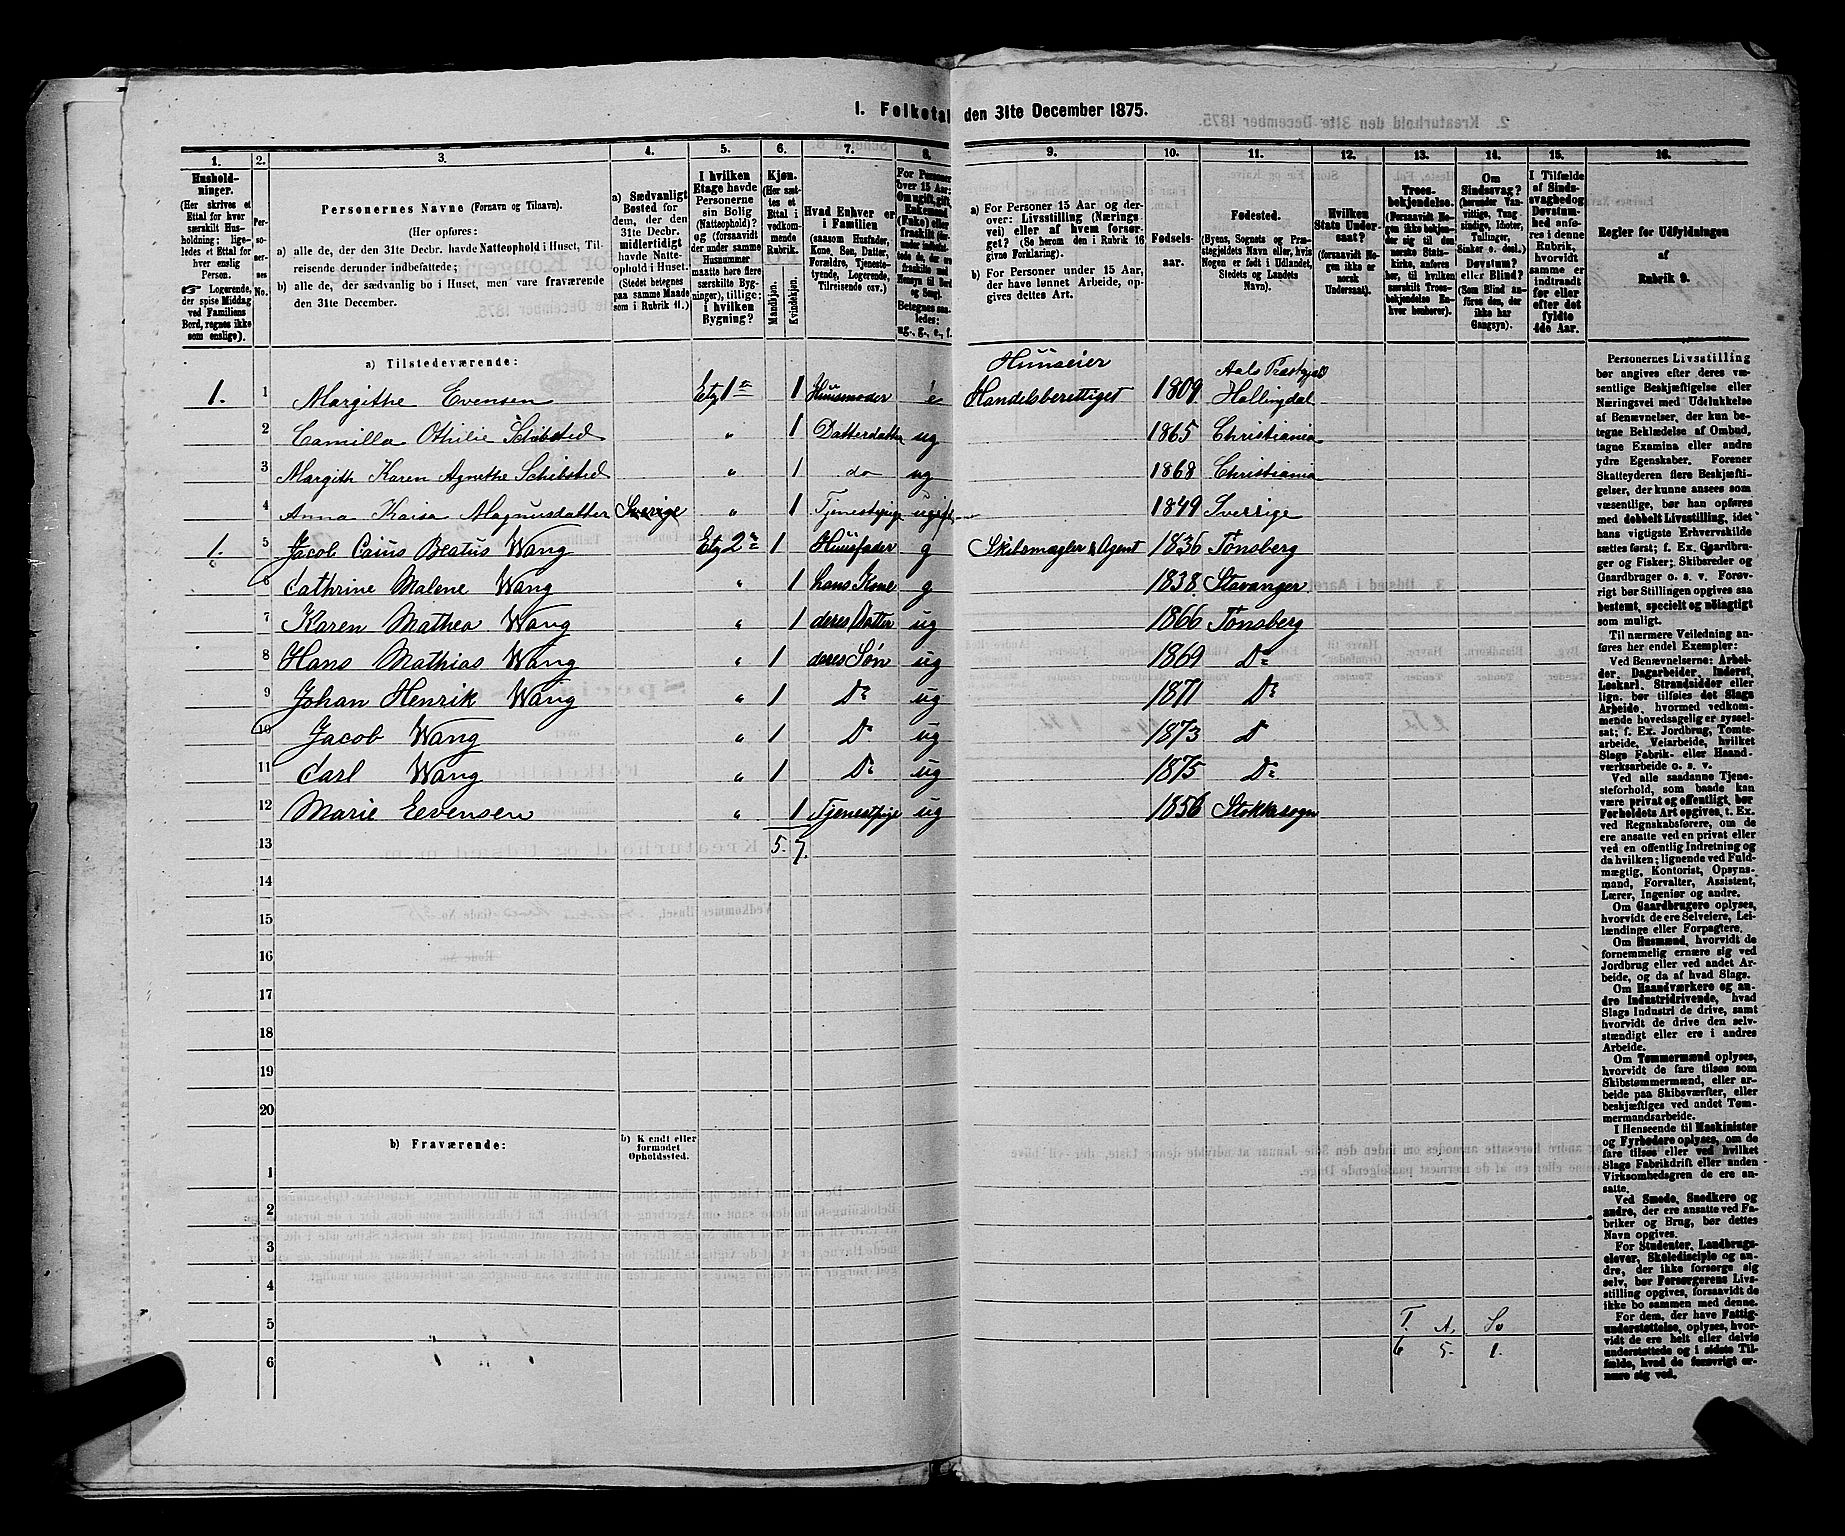 I. Folketal den 31te December 1875.
1. 2. 3. 4. 5. 6. 7. 8. 9. 10. 11. 12. 13. 14. 15. 16.
Hushold-
ninger.
(Her skrives et
Ettal for hver
særskilt Hus-
holdning; lige-
ledes et Ettal for
hver enslig
Person.
Logerende,
der spise Middag
ved Familiens
Bord, regnes ikke
som enslige).
Per-
so-
ner-
nes
No.
Personernes Navne (Fornavn og Tilnavn).
(Her opføres:
a) alle de, der den 31te Decbr. havde Natteophold i Huset, Til-
reisende derunder indbefattede;
b) alle de, der sædvanlig bo i Huset, men vare fraværende
den 31te December.
a) Sædvanligt
Bosted for
dem, der den
31te Decbr.
midlertidigt
havde Natte-
ophold i Huset.
(Stedet betegnes
paa samme Maade
som i Rubrik 11.)
I hvilken
Etage havde
Personerne
sin Bolig
(Natteophold)?
og (forsaavidt
der under samme
Husnummer
maatte høre flere
særskilte Byg-
ninger), tillige:
i hvilken
Bygning?
Kjøn.
(Her sæt-
tes et
Ettal i
vedkom-
mende
Rubrik.
Mandkjøn.
Kvindekjøn.
Hvad Enhver er
i Familien
(saasom Husfader,
Kone, Søn, Datter,
Forældre, Tjeneste-
tyende, Logerende,
Tilreisende osv.)
For Personer
over 15 Aar:
Om ugift, gift,
Enkemand
(Enke) eller
fraskilt
Betegnes saa-
ledes:
ug., g., e., f.
a) For Personer 15 Aar og der-
over: Livsstilling (Nærings-
vei) eller af hvem forsør-
get? (Se herom den i Rubrik 16
givne Forklaring).
b) For Personer under 15 Aar,
der have lønnet Arbeide, op-
gives dettes Art.
Fødsels-
aar.
Fødested.
(Byens, Sognets og Præ-
stegjeldets Navn eller, hvis
Nogen er født i Udlandet,
Stedets og Landets
Navn).
Hvilken
Stats Under-
saat?
(forsaavidt No-
gen ikke er
norsk
Undersaat).
Troes-
bekjendelse.
(Forsaavidt No-
gen ikke bekjen-
der sig til den
norske Stats-
kirke, anføres
her, til hvilken
særskilt Troes-
bekjendelse En-
hver henhører).
Om
Sindssvag?
(herunder Van-
vittige, Tung-
sindige, Idioter,
Tullinger,
Sinker o. desl.)
Døvstum?
eller Blind?
(Som Blind an-
føres den, der
ikke har
Gangsyn).
I Tilfælde
af Sinds-
svaghed og
Døvstum-
hed anfø-
res i denne
Rubrik,
hvorvidt
samme er
indtraadt
før eller
efter det
fyldte
4de Aar.
Regler for Udfyldningen
af
Rubrik 9.
a) Tilstedeværende:
Huuseier Aals Præstgjeld
1. 1 Margithe Evensen Etg 1ste 1 Huusmoder e Handelsberettiget 1809 Hallingdal
2 Camilla Othilie Schibsted " 1 Datterdatter ug 1865 Christiania
3 Margith Karen Agnethe Schibsted " 1 do ug 1868 Christiania
4 Anna Kaisa Magnusdatter Sverige " 1 Tjenestepige ugift 1849 Sverrige
1. 5 Jacob Caius Beatus Wang Etg 2n 1 Huusfader g Skibsmægler & Agent 1836 Tønsberg
6 Cathrine Malene Wang " 1 hans Kone g 1838 Stavanger
7 Karen Mathea Wang " 1 deres Datter ug 1866 Tønsberg
8 Hans Mathias Wang " 1 deres Søn ug 1869 Do
9 Johan Henrik Wang " 1 Do ug 1871 Do
10 Jacob Wang " 1 Do ug 1873 D
11 Carl Wang " 1 Do ug 1875 Do
12 Marie Eevensen " 1 Tjenestpige ug 1856 Stokkesogn
13 5. 7.
14
15
16
17
18
19
20
b) Fraværende: b) Kjendt eller
formodet
Opholdssted.
1
2
3
4
5 T. A. Sv
6 6 5. 1.
Personernes Livsstilling
bør angives efter deres væ-
sentlige Beskjæftigelse eller
Næringsvei med Udelukkelse
af Benævnelser, der kun be-
tegne Beklædelse af Ombud,
tagne Examina eller andre
ydre Egenskaber. Forener
Skatteyderen flere Beskjæfti-
gelser, der kunne ansees som
væsentlige, bør han opføres
med dobbelt Livsstilling, idet
hans vigtigste Erhvervskilde
sættes først; f. Ex. Gaardbru-
ger og Fisker; Skibsreder og
Gaardbruger o. s. v. Forøv-
rigt bør Stillingen opgives saa
bestemt, specielt og nøiagtigt
som muligt.
Til nærmere Veiledning an-
føres her endel Exempler:
Ved Benævnelserne: Arbei-
der, Dagarbeider, Inderst,
Løskarl, Strandsidder eller
lign. bør tilføies det Slags
Arbeide, hvormed vedkom-
mende hovedsagelig er syssel-
sat; f. Ex. Jordbrug, Tomte-
arbeide, Veiarbeide, hvilket
Slags Fabrik- eller Haand-
værksarbeide o. s. v.
Ved alle saadanne Tjene-
steforhold, som baade kan
være privat og offentligt, bør
Forholdets Art opgives, t. Ex.
ved Regnskabsførere, om de
ere ansatte ved en privat eller
ved en offentlig Indretning og
da hvilken; lignende ved Fuld-
mægtig, Kontorist, Opsyns-
mand, Forvalter, Assistent,
Lærer, Ingeniør og andre.
Om Gaardbrugere oplyses,
hvorvidt de ere Selveiere, Lei-
lændinge eller Forpagtere.
Om Husmænd, hvorvidt de
fornemmelig ernære sig ved
Jordbrug eller ved andet Ar-
beide, og da af hvad Slags.
Om Haandværkere og an-
dre Industridrivende, hvad
Slags Industri de drive, samt
hvorvidt de drive den selv-
stændigt eller ere i andres
Arbeide.
Om Tømmermænd oplyses,
hvorvidt de fare tilsøs som
Skibstømmermænd, eller ar-
beide paa Skibsværfter, eller
beskjæftiges ved andet Tøm-
mermandsarbeide.
I Henseende til Maskinister
og Fyrbødere oplyses, om de
fare tilsøs eller ved hvilket
Slags Fabrikdrift eller anden
Virksomhedsgren de ere an-
satte.
Ved Smede, Snedkere og
andre, der ere ansatte ved Fa-
briker og Brug, bør dettes
Navn opgives.
For Studenter, Landbrugs-
elever, Skoledisciple og an-
dre, der ikke forsørge sig
selv, bør Forsørgerens Livs-
stilling opgives, forsaavidt de
ikke bo sammen med denne.
For dem, der have Fattig-
understøttelse, oplyses, hvor-
vidt de ere helt eller delvis
understøttede og i sidste Til-
fælde, hvad de forøvrigt er-
nære sig ved.